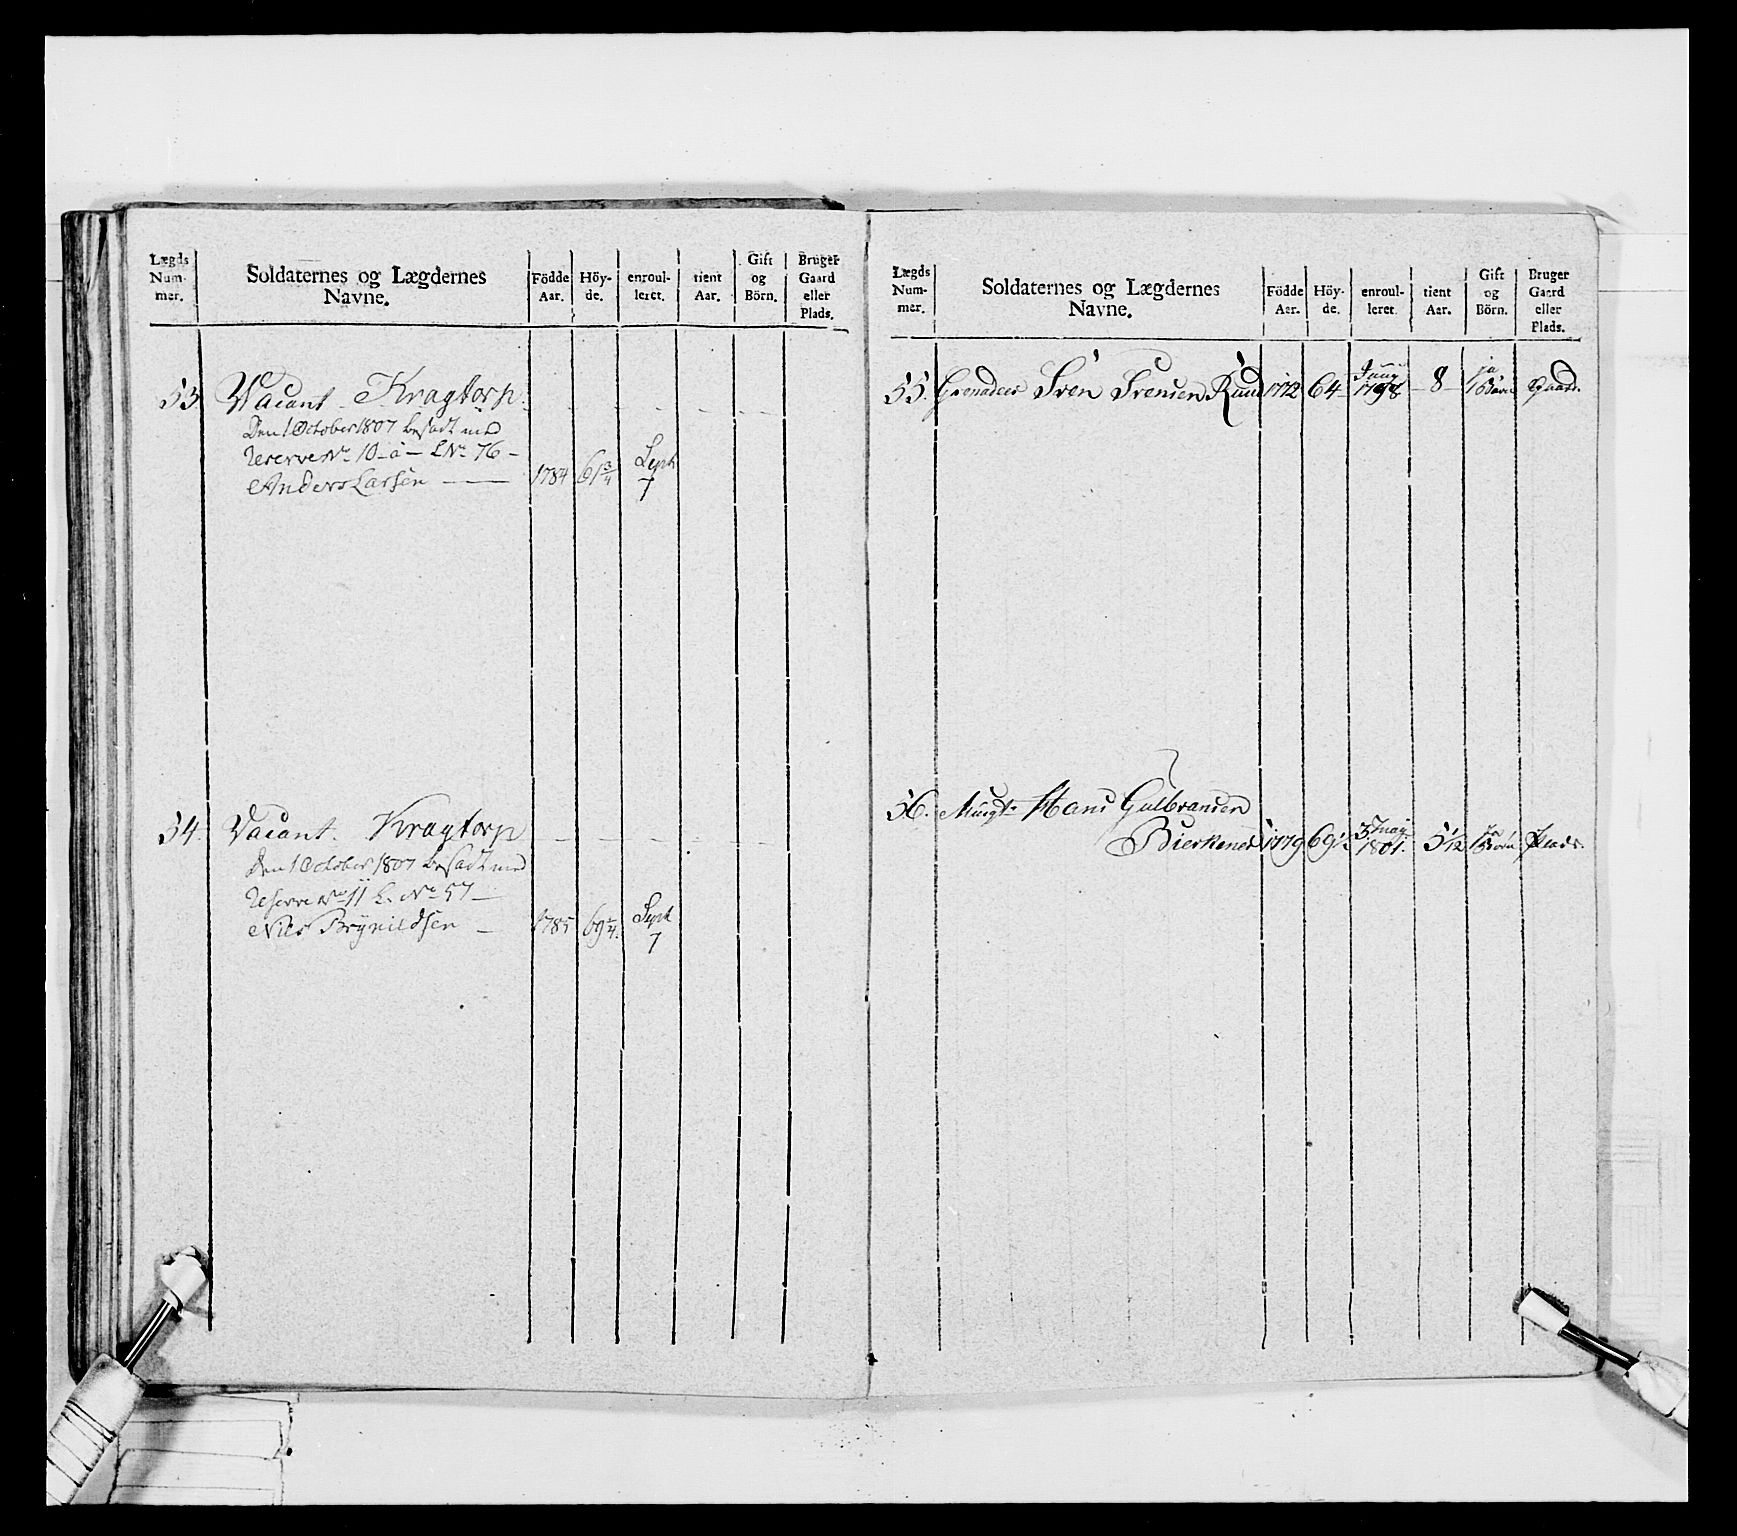 Lægds Num- mer. Soldaternes og Lægdernes Navne. Födde Aar. Höy- de. enroul- leret. tient Aar. Gift og Börn. Bruger Gaard eller Plads.
53. Vacant Kragtorp
Den 1 October 1807 besadt med
Reserve No 10 - a - L No 76 -
Anders Larsen 1784 61 3/4 Sept 7
54. Vacant. Kragtorp
Den 1 October 1807 besadt med
Reserve No 11 L. No 57 -
Nils Brynildsen 1785 Sept 7
Lægds Num- mer. Soldaternes og Lægdernes Navne. Födde Aar. Höy- de. enroul- leret. tient Aar. Gift og Börn. Bruger Gaard eller Plads.
55. Grenadeer Sven Svensen Ruud 1772 64 1798 8 ja 1 Barn Gaard.
56. Musqt. Hans Gulbransen
Bierkenes 1779 1801. 5 1/12 ja Plads.